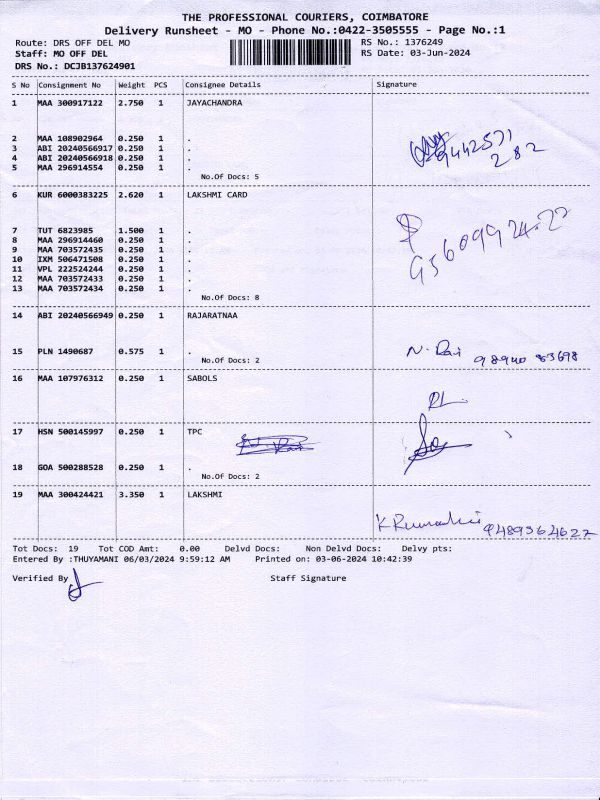 THE PROFESSIONAL COURIERS, COIMBATORE
Delivery Runsheet - MO - Phone No.:0422-3505555 - Page No.:1
Route: DRS OFF DEL MO RS No.: 1376249
Staff: MO OFF DEL RS Date: 03-Jun-2024
DRS No.: DCJB137624901
S No Consignment No Weight PCS Consignee Details Signature
1 MAA 300917122 2.750 1 JAYACHANDRA
2 MAA 108902964 0.250 1 .
3 ABI 20240566917 0.250 1 .
4 ABI 20240566918 0.250 1 .
5 MAA 296914554 0.250 1 .
9442571
282
No.Of Docs: 5
6 KUR 6000383225 2.620 1 LAKSHMI CARD
7 TUT 6823985 1.500 1 .
8 MAA 296914460 0.250 1 .
9 MAA 703572435 0.250 1 .
10 IXM 506471508 0.250 1 .
11 VPL 222524244 0.250 1 .
12 MAA 703572433 0.250 1 .
13 MAA 703572434 0.250 1 .
No.Of Docs: 8
14 ABI 20240566949 0.250 1 RAJARATNAA
15 PLN 1490687 0.575 1 . N. Raj 98940 83698
No.Of Docs: 2
16 MAA 107976312 0.250 1 SABOLS
17 HSN 500145997 0.250 1 TPC
18 GOA 500288528 0.250 1 .
No.Of Docs: 2
19 MAA 300424421 3.350 1 LAKSHMI
9489364627
Tot Docs: 19 Tot COD Amt: 0.00 Delvd Docs: Non Delvd Docs: Delvy pts:
Entered By :THUYAMANI 06/03/2024 9:59:12 AM Printed on: 03-06-2024 10:42:39
Verified By Staff Signature